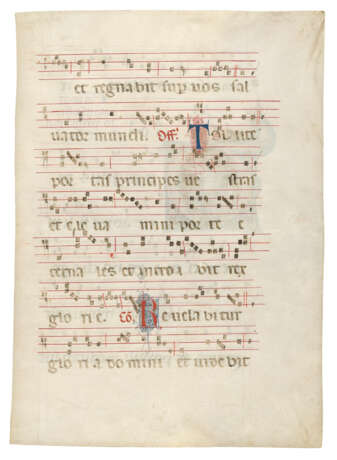 et regnabit sup vos sal
vator mundi. Off. Tollite
por tas principes ve stras
et e le va mini por te e
terna les et introi vit rex
glo ri e. Co. Re vela bitur
glo ri a do mini et vide bit